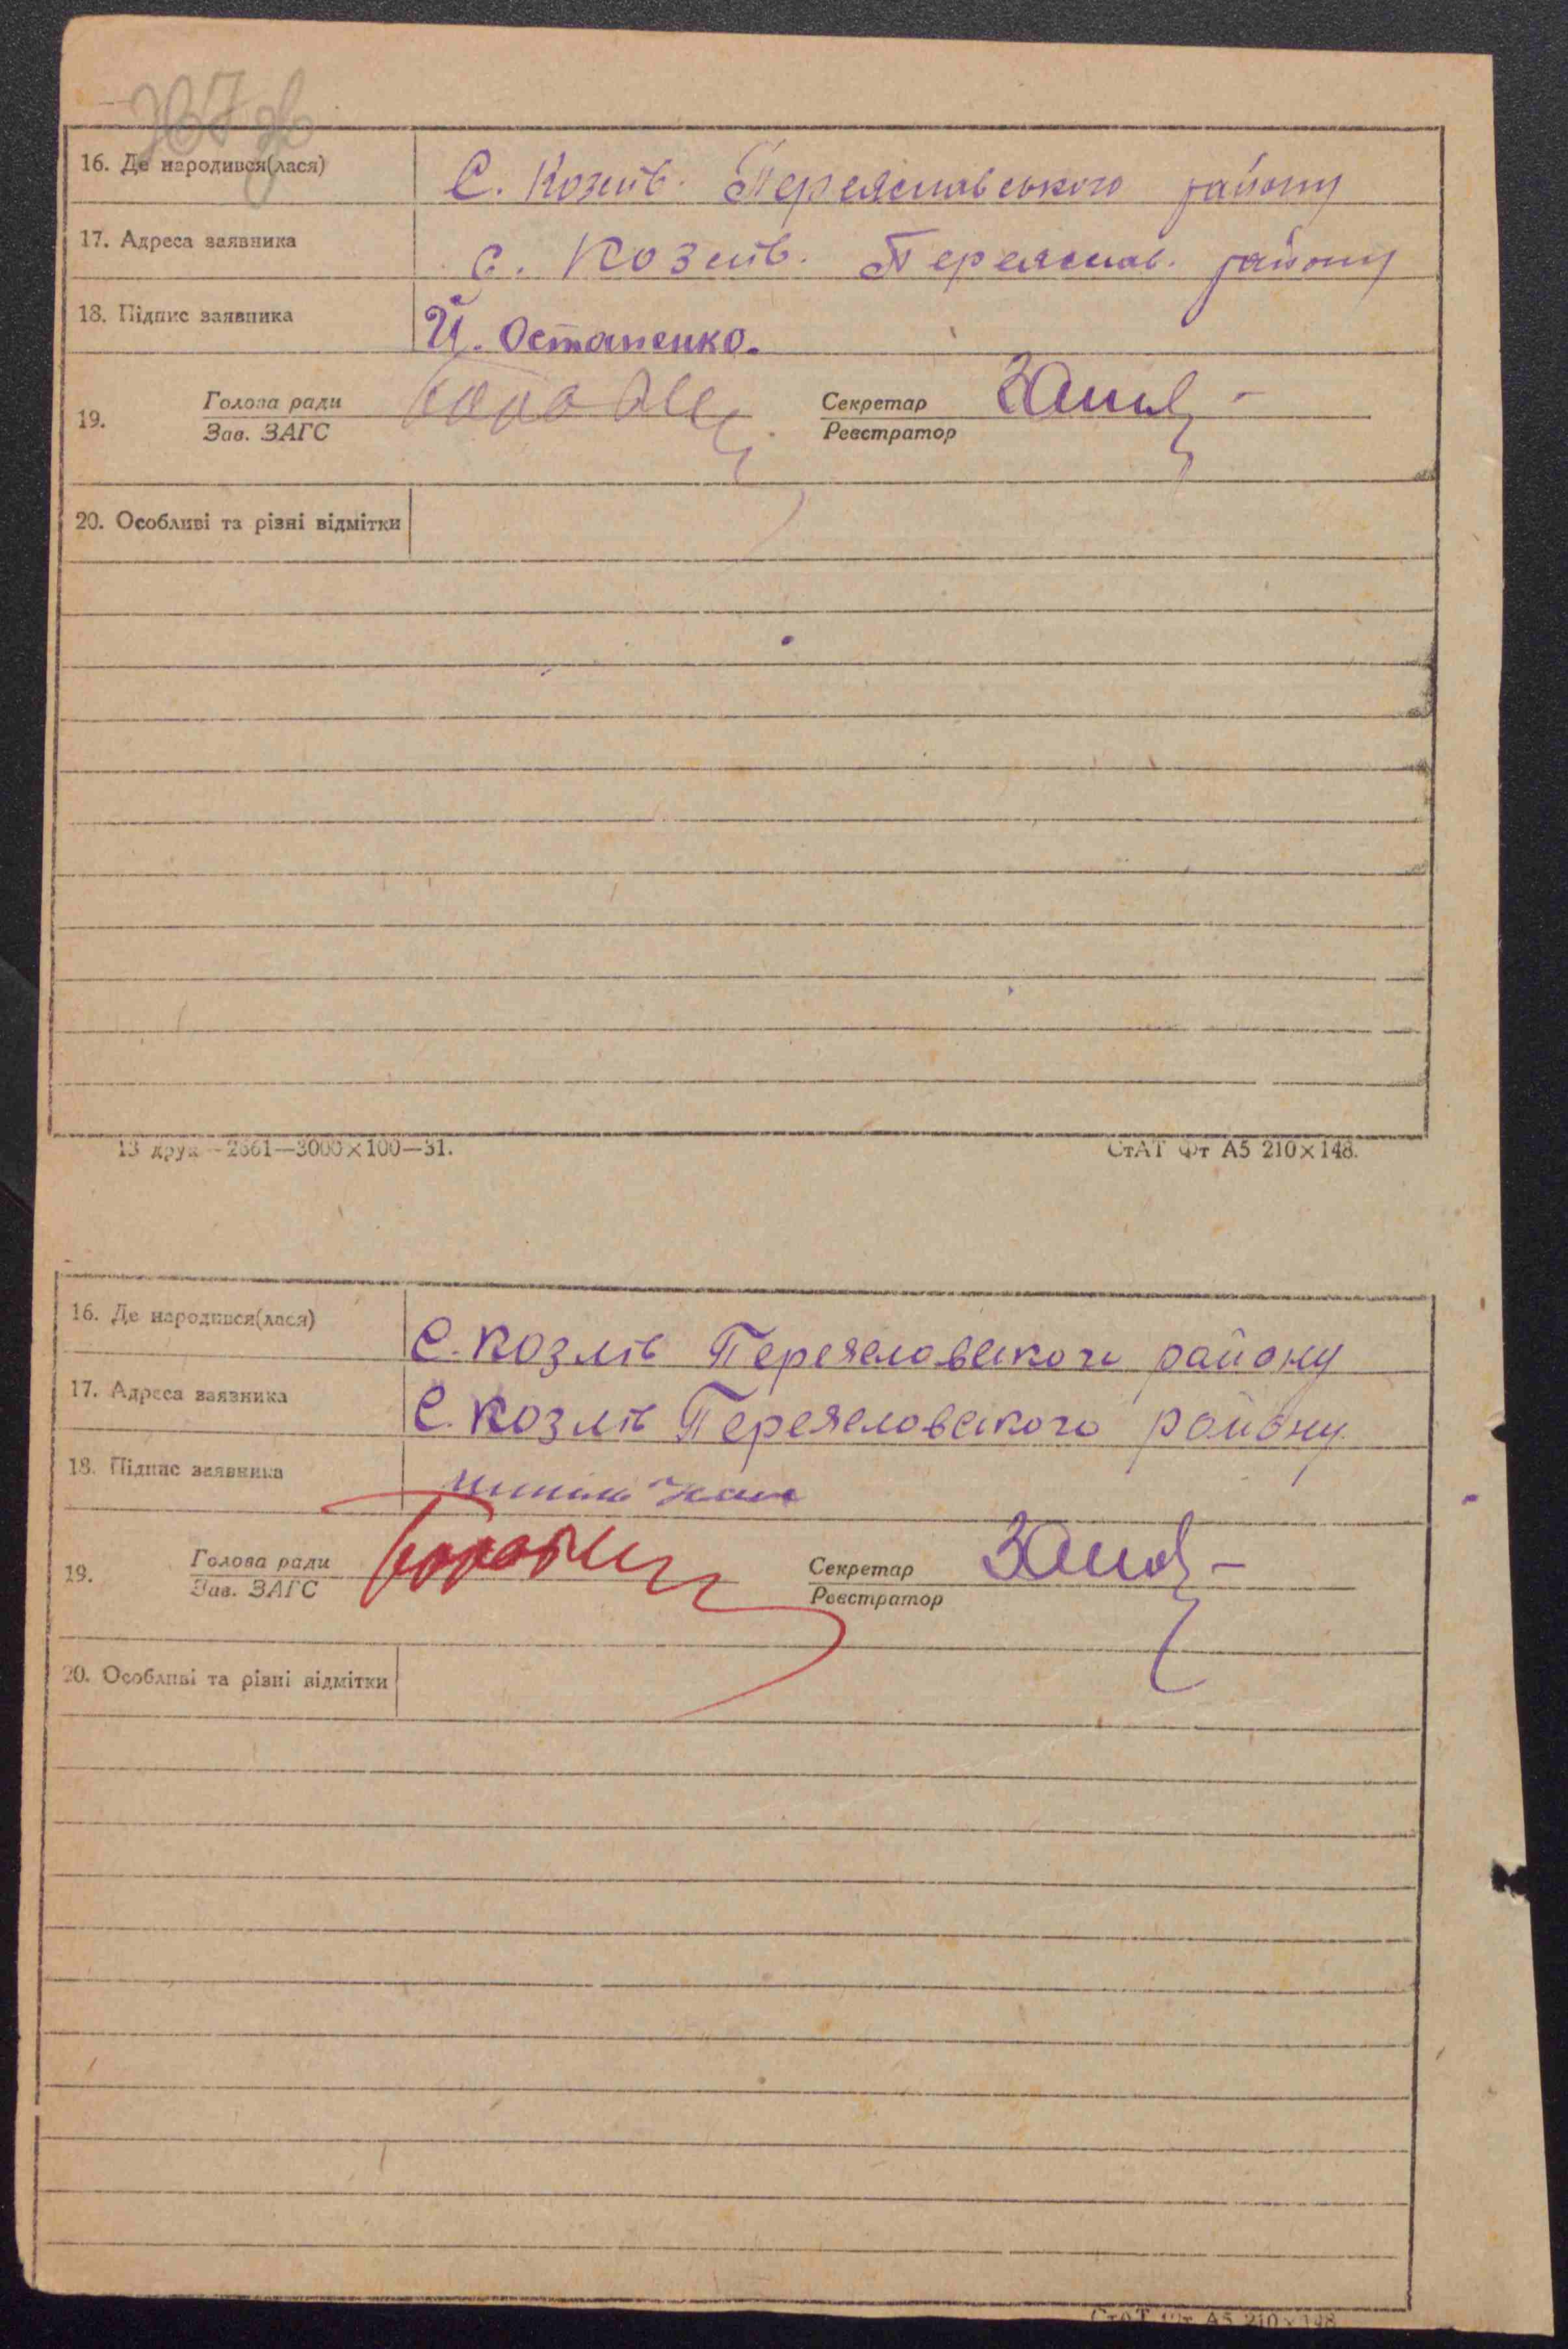 367 зв
16. Де народився(лася) С. Козлів. Переяславського району
17. Адреса заявника с. Козлів. Переяслав. району
18. Підпис заявника Й. Остапенко.
Голова ради Секретар
19.
Зав. ЗАГС Реєстратор
20. Особливі та різні відмітки
13 друк - 2661—3000×100—31. СтАТ Фт А5 210×148.
16. Де народився(лася) С. Козлів Переяславського району
17. Адреса заявника С. Козлів Переяславського району
18. Підпис заявника
Голова ради Секретар
19.
Зав. ЗАГС Реєстратор
20. Особливі та різні відмітки
СтАТ Фт А5 210×148